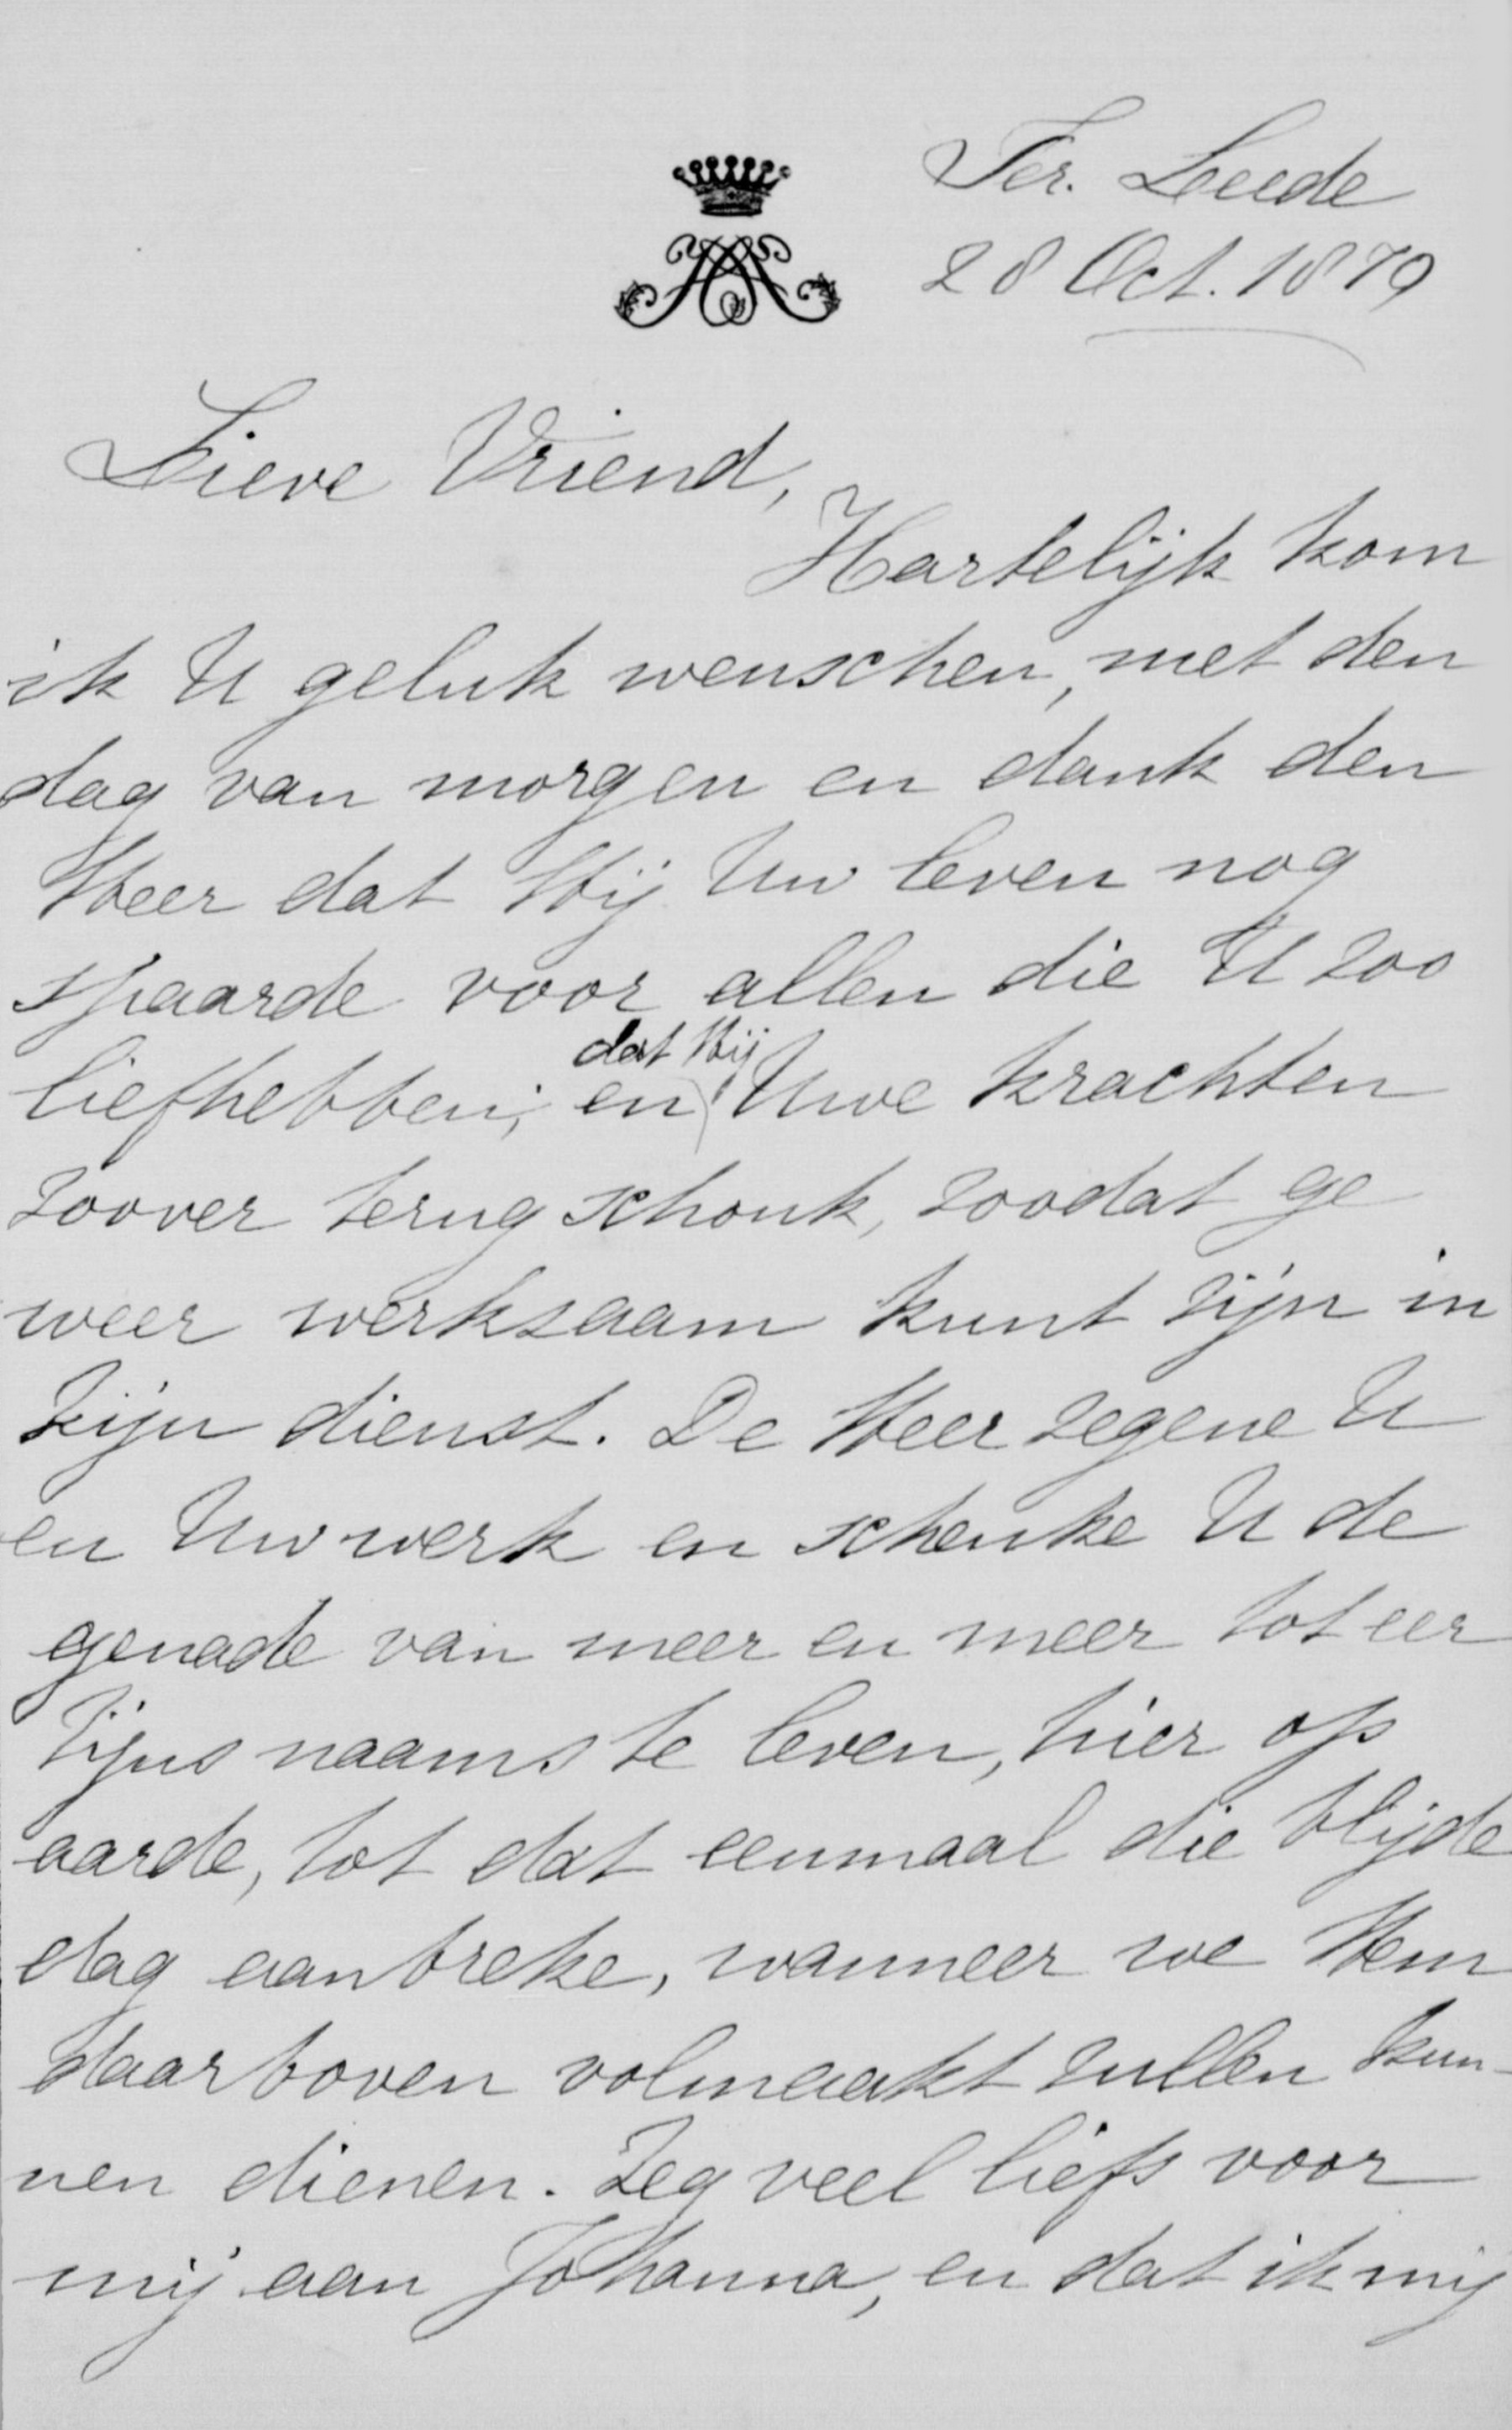 Ter. Leede
28 Oct. 1879
Lieve Vriend,
Hartelijk kom
ik U geluk wenschen, met den
dag van morgen en dank den
Heer dat Hij Uw leven nog
spaarde voor allen die U zoo
liefhebben; en dat Hij Uwe krachten
zoover terug schonk, zoodat ge
weer werkzaam kunt zijn in
Zijn dienst. De Heer zegene U
en Uw werk en schenke U de
genade van meer en meer tot eer
Zijns naams te leven, hier op
aarde, tot dat eenmaal die blijde
dag aanbreke, wanneer we Hem
daarboven volmaakt zullen kun-
nen dienen. Zeg veel liefs voor
mij aan Johanna, en dat ik mij